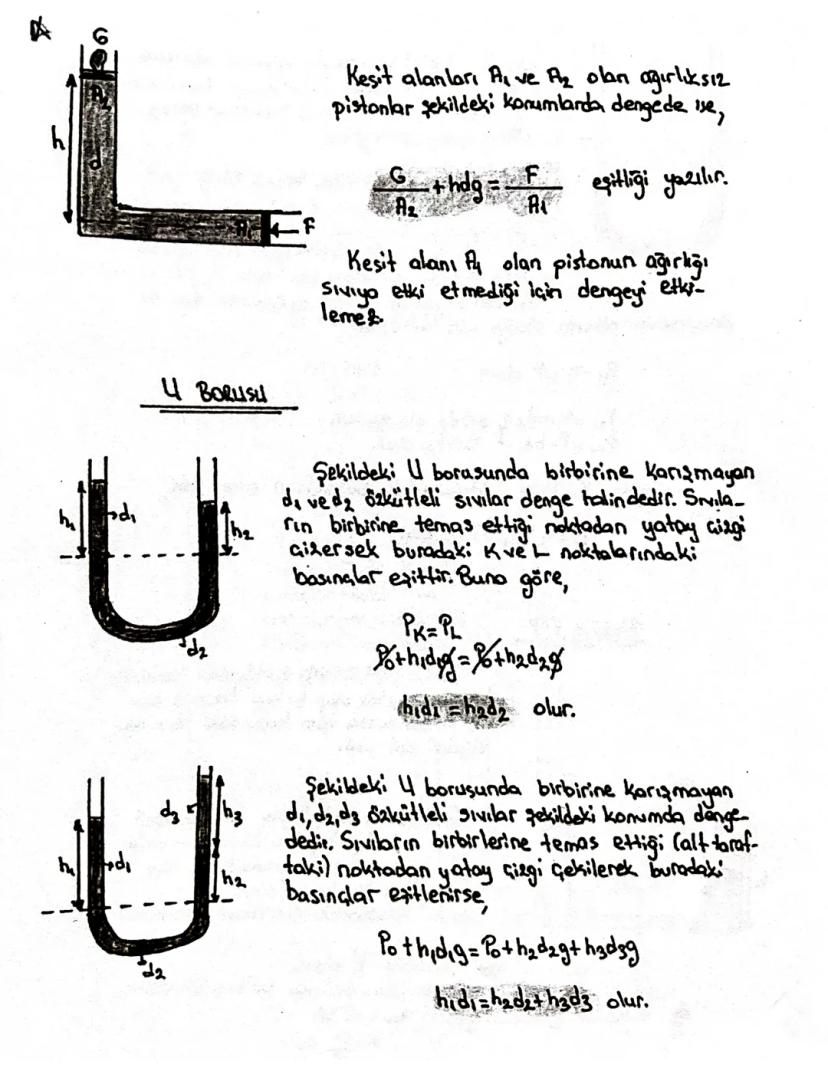 G
A2
h
d
A1
F
Kesit alanları A1 ve A2 olan ağırlıksız
pistonlar şekildeki konumlarda dengede ise,
G/A2 + hdg = F/A1 eşitliği yazılır.
Kesit alanı A1 olan pistonun ağırlığı
sıvıya etki etmediği için dengeyi etki-
lemez.
U BORUSU
h1
d1
h2
d2
Şekildeki U borusunda birbirine karışmayan
d1 ve d2 özkütleli sıvılar denge halindedir. Sıvıla-
rın birbirine temas ettiği noktadan yatay çizgi
çizersek buradaki K ve L noktalarındaki
basınçlar eşittir. Buna göre,
PK=PL
P0+h1d1g=P0+h2d2g
h1d1=h2d2 olur.
h1
d1
d3
h3
h2
d2
Şekildeki U borusunda birbirine karışmayan
d1, d2, d3 özkütleli sıvılar şekildeki konumda denge-
dedir. Sıvıların birbirlerine temas ettiği (alt taraf-
taki) noktadan yatay çizgi çekilerek buradaki
basınçlar eşitlenirse,
P0+h1d1g=P0+h2d2g+h3d3g
h1d1=h2d2+h3d3 olur.